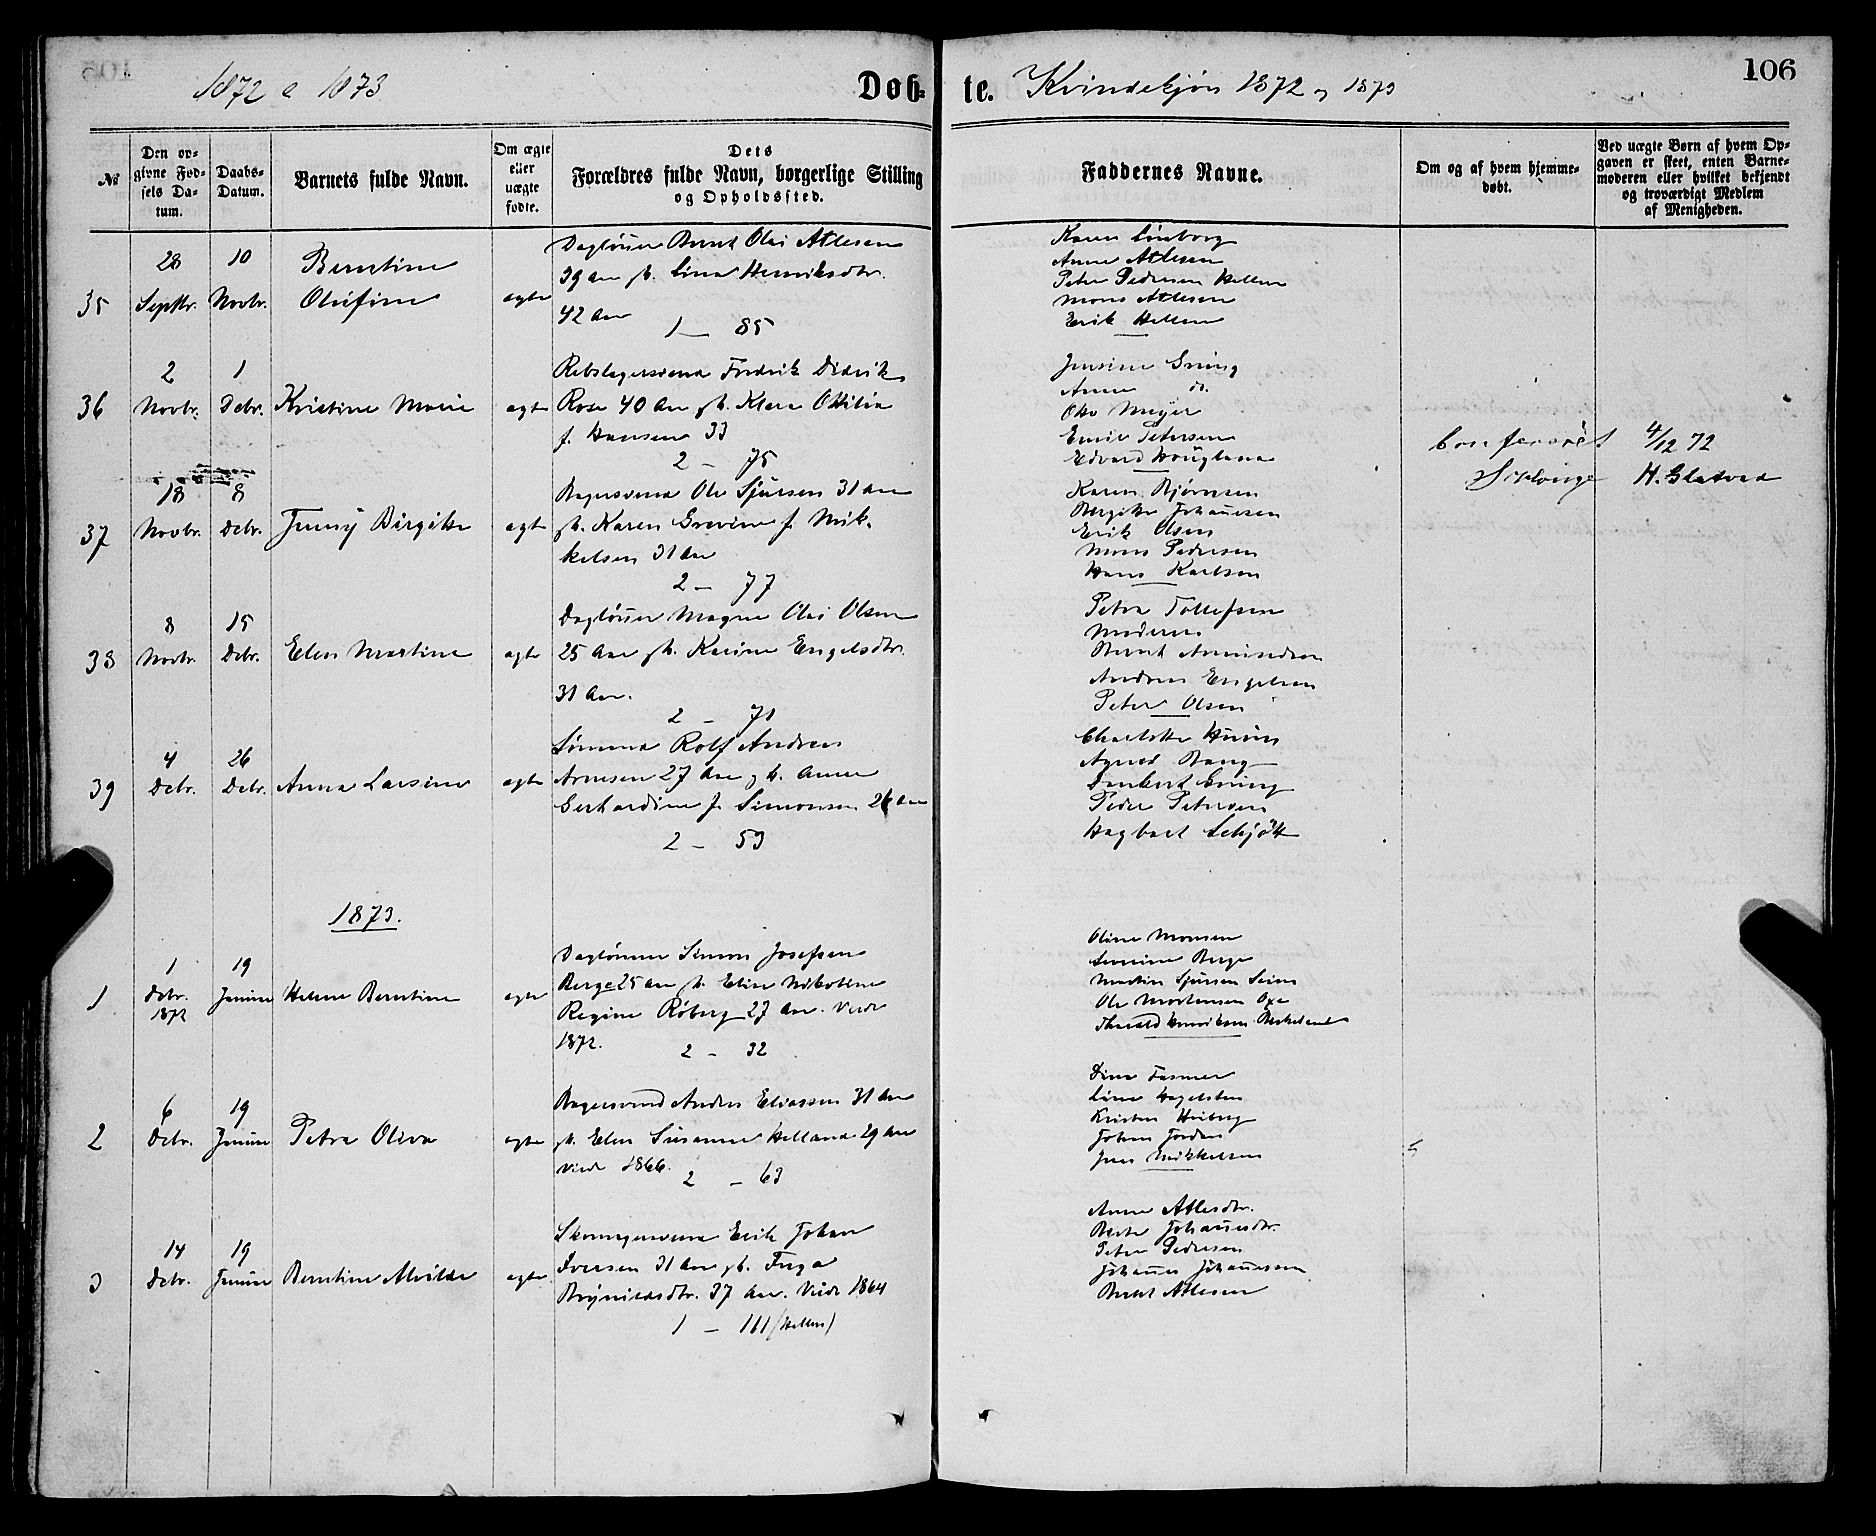 1872 & 1873
Døb-
te. Kvindekjøn 1872 og 1873
106
№
Den op-
givne Fød-
sels Da-
tum.
Daabs-
Datum.
Barnets fulde Navn.
Om ægte
eller
uægte
fødte.
Dets
Forældres fulde Navn, borgerlige Stilling
og Opholdssted.
Faddernes Navne.
Om og af hvem hjemme-
døbt.
Ved uægte Børn af hvem Op-
gaven er skeet, enten Barne-
moderen eller hvilket bekjendt
og troværdigt Medlem
af Menigheden.
35
28
Septbr.
10
Novbr.
Berntine
Olufine
ægte
Dagløner Bernt Olai Atlesen
39 Aar gb. Lina Henriksdtr.
42 Aar
1 — 85
Karen
Anne Atlesen
Peter Pedersen Hellen
Mons Atlesen
Erik Hellen
36
2
Novbr.
1
Debr.
Kristine Marie
ægte
Rebslagersvend Fredrik Didrik
Rose 40 Aar gb. Klara Ottilia
f. Hansen 33
2 — 75
Jensine Gring
Anne do.
Otto Meyer
Emil Petersen
Edvard Houglana
Conferered 4/12 72
H. Gletvad
37
18
Novbr.
8
Debr.
Jenny Birgitte
ægte
Bagersvend Ole Sjursen 31 Aar
gb. Karen Grevine f. Mik-
kelsen 31 Aar
2 — 77
Karen Bjørnsen
Bergitte Johannesen
Erik Olsen
Mons Pedersen
Hans Karlsen
38
8
Novbr.
15
Debr.
Elen Martine
ægte
Dagløner Magne Olai Olsen
25 Aar gb. Karine Engelsdtr.
31 Aar.
2 — 71
Petra Tollefsen
Moderen
Bernt Amundsen
Andreas Engelsen
Peter Olsen
39
4
Debr.
26
Debr.
Anna Larsine
ægte
Sømand Rolf Andreas
Arnesen 27 Aar gb. Anne
Gerhardine f. Simonsen 26 Aar
2 — 53
Charlotte
Agnes Bang
Lambert Gring
Peder Petersen
Hagbart Schjøtt
1873.
1
1
Debr.
1872
19
Januar
Helene Berntine
ægte
Dagløner Simon Josefsen
Berge 25 Aar gb. Elise Nikoline
Regine Røberg 27 Aar. Viede
1872.
2 — 32
Oline Monsen
Severine Berge
Martin Sjursen Seim
Ole Mortensen Oxe
Harald Henriksen
2
6
Debr.
19
Januar
Petra Oliva
ægte
Bagersvend Anders Eliassen 31 Aar
gb. Elen Susanne Helland 29 Aar
Viede 1866.
2 — 63
Dina Fasmer
Line Hagelsten
Kristen Heiberg
Johan Jordan
Jens Mikkelsen
3
14
Debr.
19
Januar
Berntine Alvilde
ægte
Skomagersvend Erik Johan
Iversen 31 Aar gb. Inga
Brynildsdtr. 37 Aar. Viede 1864
1 — 111 (Hellen)
Anne Atlesdtr.
Berte Johannesdtr.
Peter Pedersen
Johannes Johannessen
Bernt Atlesen